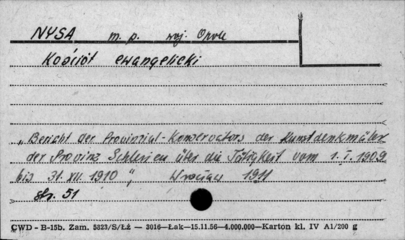 NYSA m. p. woj. Opole
Kościół ewangelicki
„Bericht der Provinzial-Konservators der Kunstdenkmäler
der Provinz Schlesien über die Tätigkeit vom 1. I. 1909
bis 31. XII. 1910", Wrocław 1911
str. 51
CWD - B-15b. Zam. 5823/S/Łź — 3016—Łak—15.11.56—4.000.000—Karton kl. IV A1/200 g